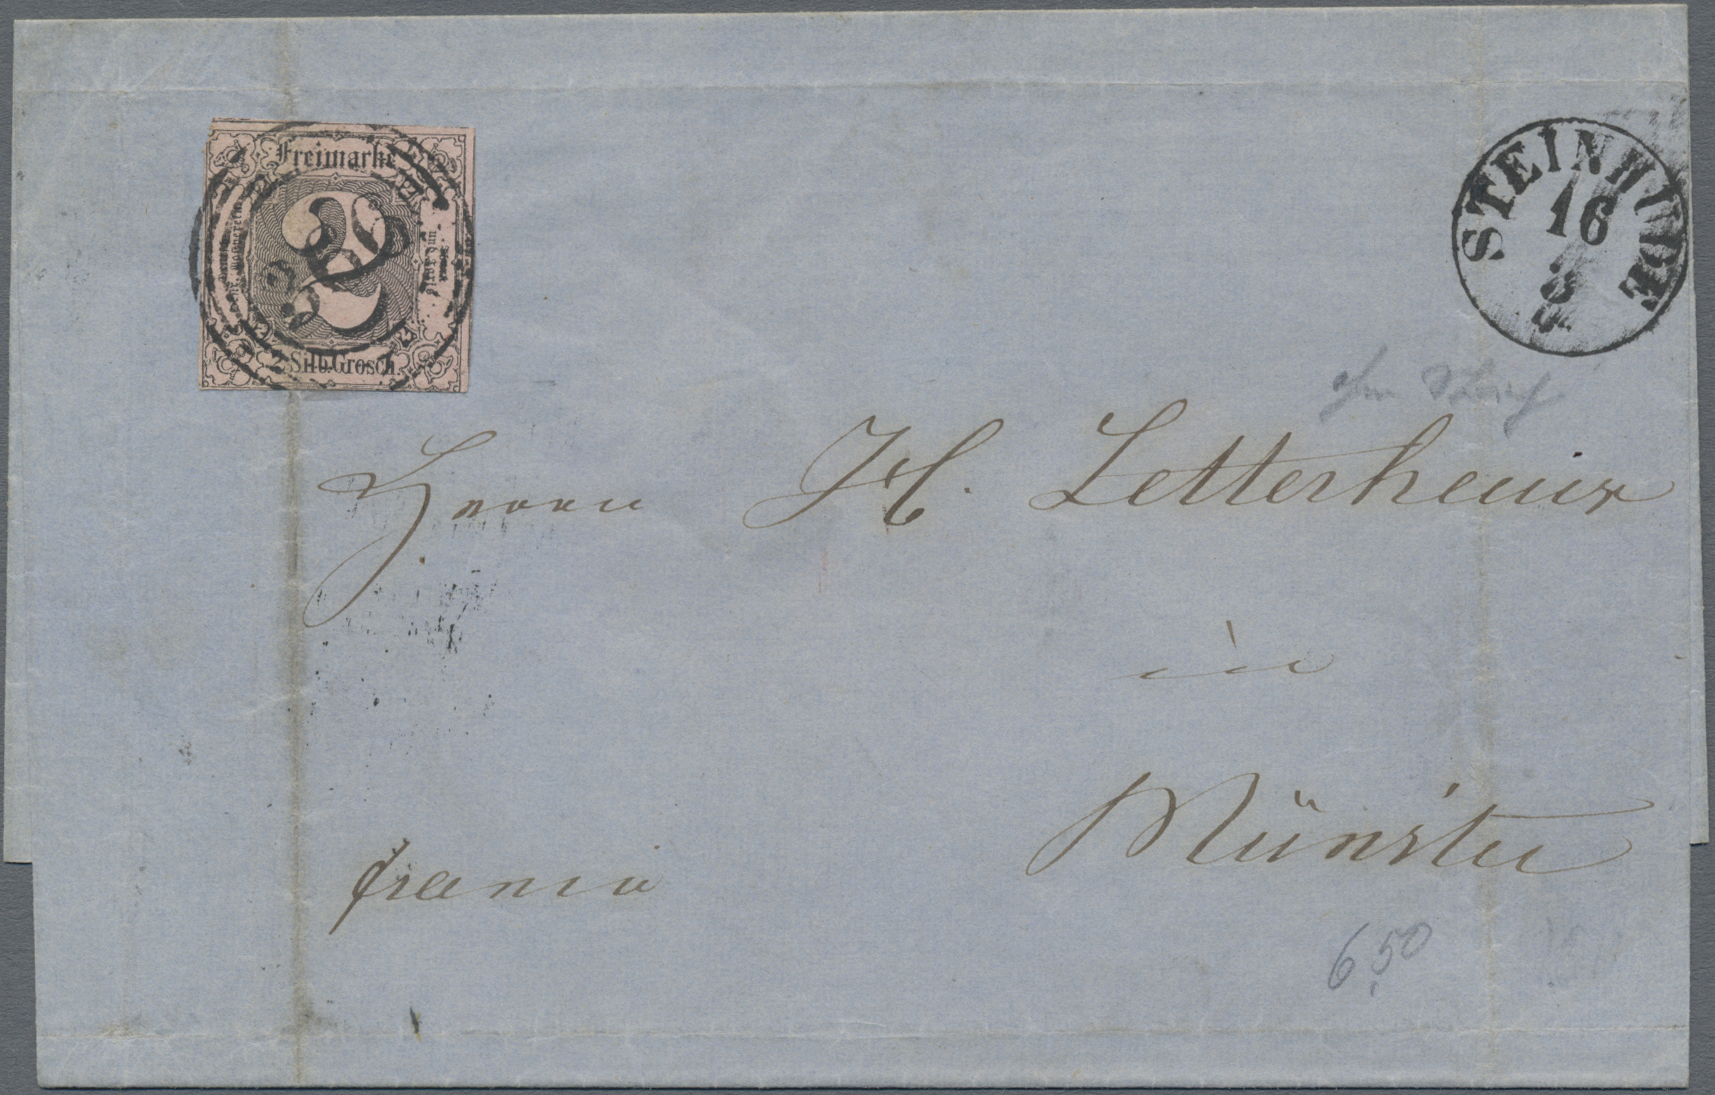 Freimarke
2
2 Silb. Grosch.
STEINHUDE
16
3
Herrn H. Letterhaus
in
Münster
franco
6,50